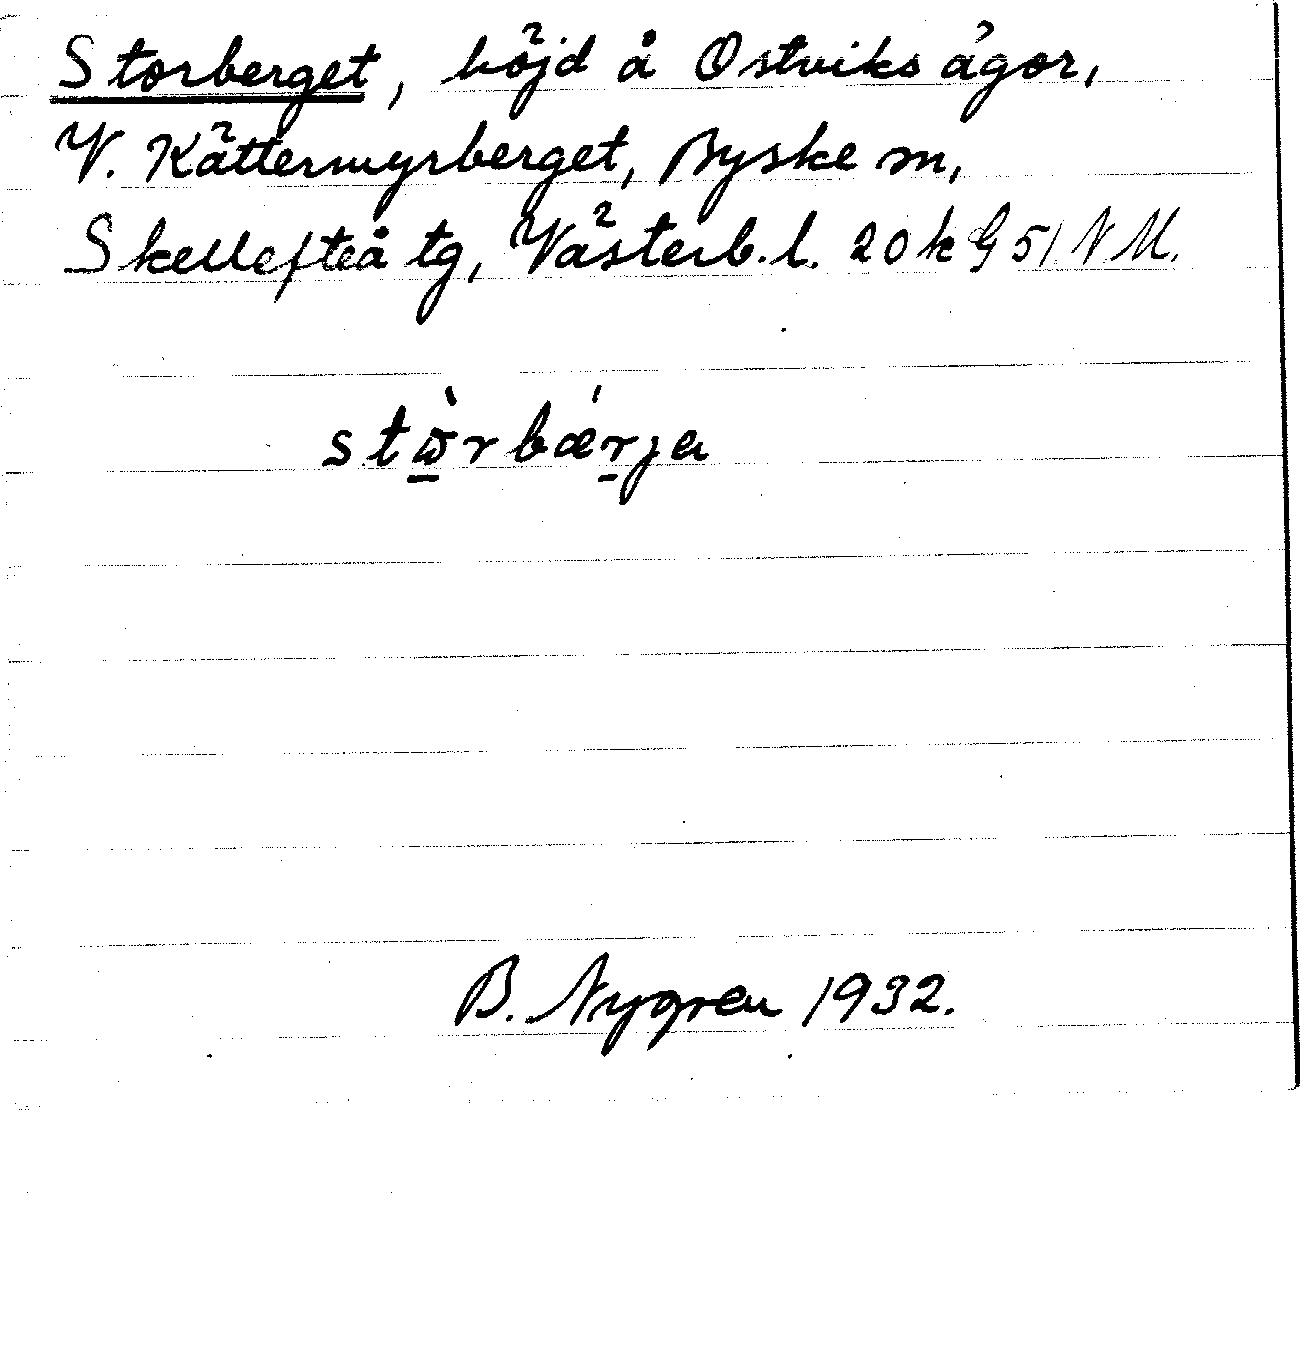 Storberget, höjd å Ostviks ägor,
V. Kättermyrberget, Byske sn,
Skellefteå tg, Västerb. l. 20 k G 51 NM.
stὼ̱rbǽr̠ja
B. Nygren 1932.